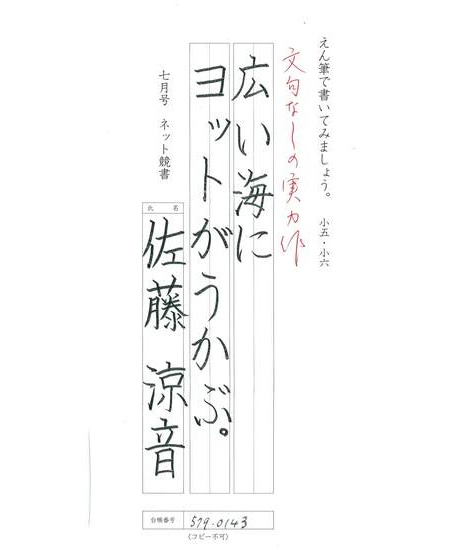 えん筆で書いてみましょう。 小五・小六
文句なしの実力作
広い海に
ヨットがうかぶ。
七月号 ネット競書
氏 名
佐藤 涼音
台帳番号 579-0143
(コピー不可)